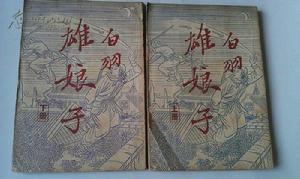 白羽
雄娘子
下册
白羽
雄娘子
上册